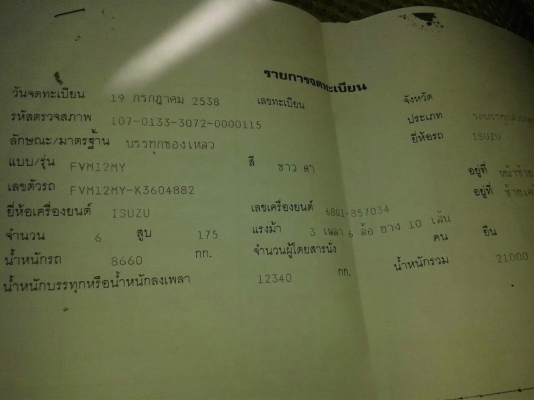 รายการจดทะเบียน
วันจดทะเบียน 19 กรกฎาคม 2538 เลขทะเบียน จังหวัด
รหัสตรวจสภาพ 107-0133-3072-0000115 ประเภท
ลักษณะ/มาตรฐาน บรรทุกของเหลว ยี่ห้อรถ ISUZU
แบบ/รุ่น FVM12MY สี ขาว ดำ อยู่ที่
เลขตัวรถ FVM12MY-K3604882 อยู่ที่
ยี่ห้อเครื่องยนต์ ISUZU เลขเครื่องยนต์ 6BG1-857034
จำนวน 6 สูบ 175 แรงม้า 3 เพลา 6 ล้อ ยาง 10 เส้น
น้ำหนักรถ 8660 กก. จำนวนผู้โดยสารนั่ง คน ยืน
น้ำหนักบรรทุกหรือน้ำหนักลงเพลา 12340 กก. น้ำหนักรวม 21000